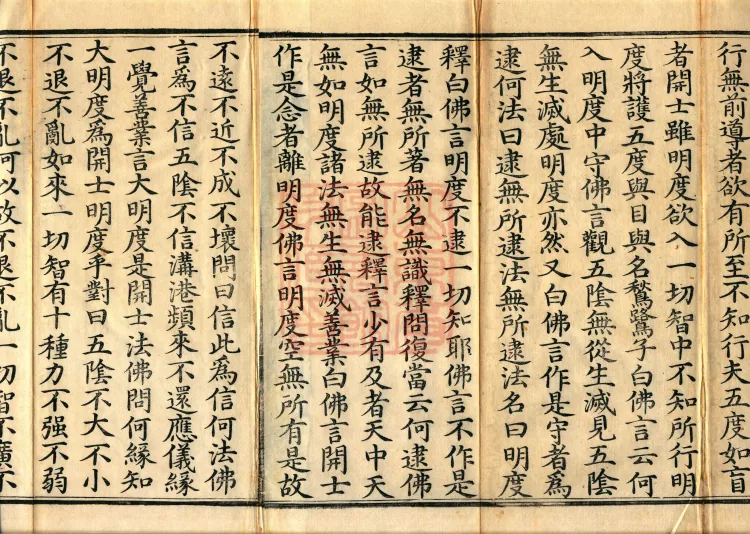 行無前導者欲有所至不知行夫五度如盲
者開士雖明度欲入一切智中不知所行明
度將護五度與目與名鶖鷺子白佛言云何
入明度中守佛言觀五陰無從生滅見五陰
無生滅處明度亦然又白佛言作是守者為
逮何法曰逮無所逮法無所逮法名曰明度
釋白佛言明度不逮一切知耶佛言不作是
逮者無所著無名無識釋問復當云何逮佛
言如無所逮故能逮釋言少有及者天中天
無如明度諸法無生無滅善業白佛言開士
作是念者離明度佛言明度空無所有是故
不遠不近不成不壞問曰信此為信何法佛
言為不信五陰不信溝港頻來不還應儀緣
一覺善業言大明度是開士法佛問何緣知
大明度為開士明度乎對曰五陰不大不小
不退不亂如來一切智有十種力不强不弱
不退不亂何以故不退不亂一切智不廣不